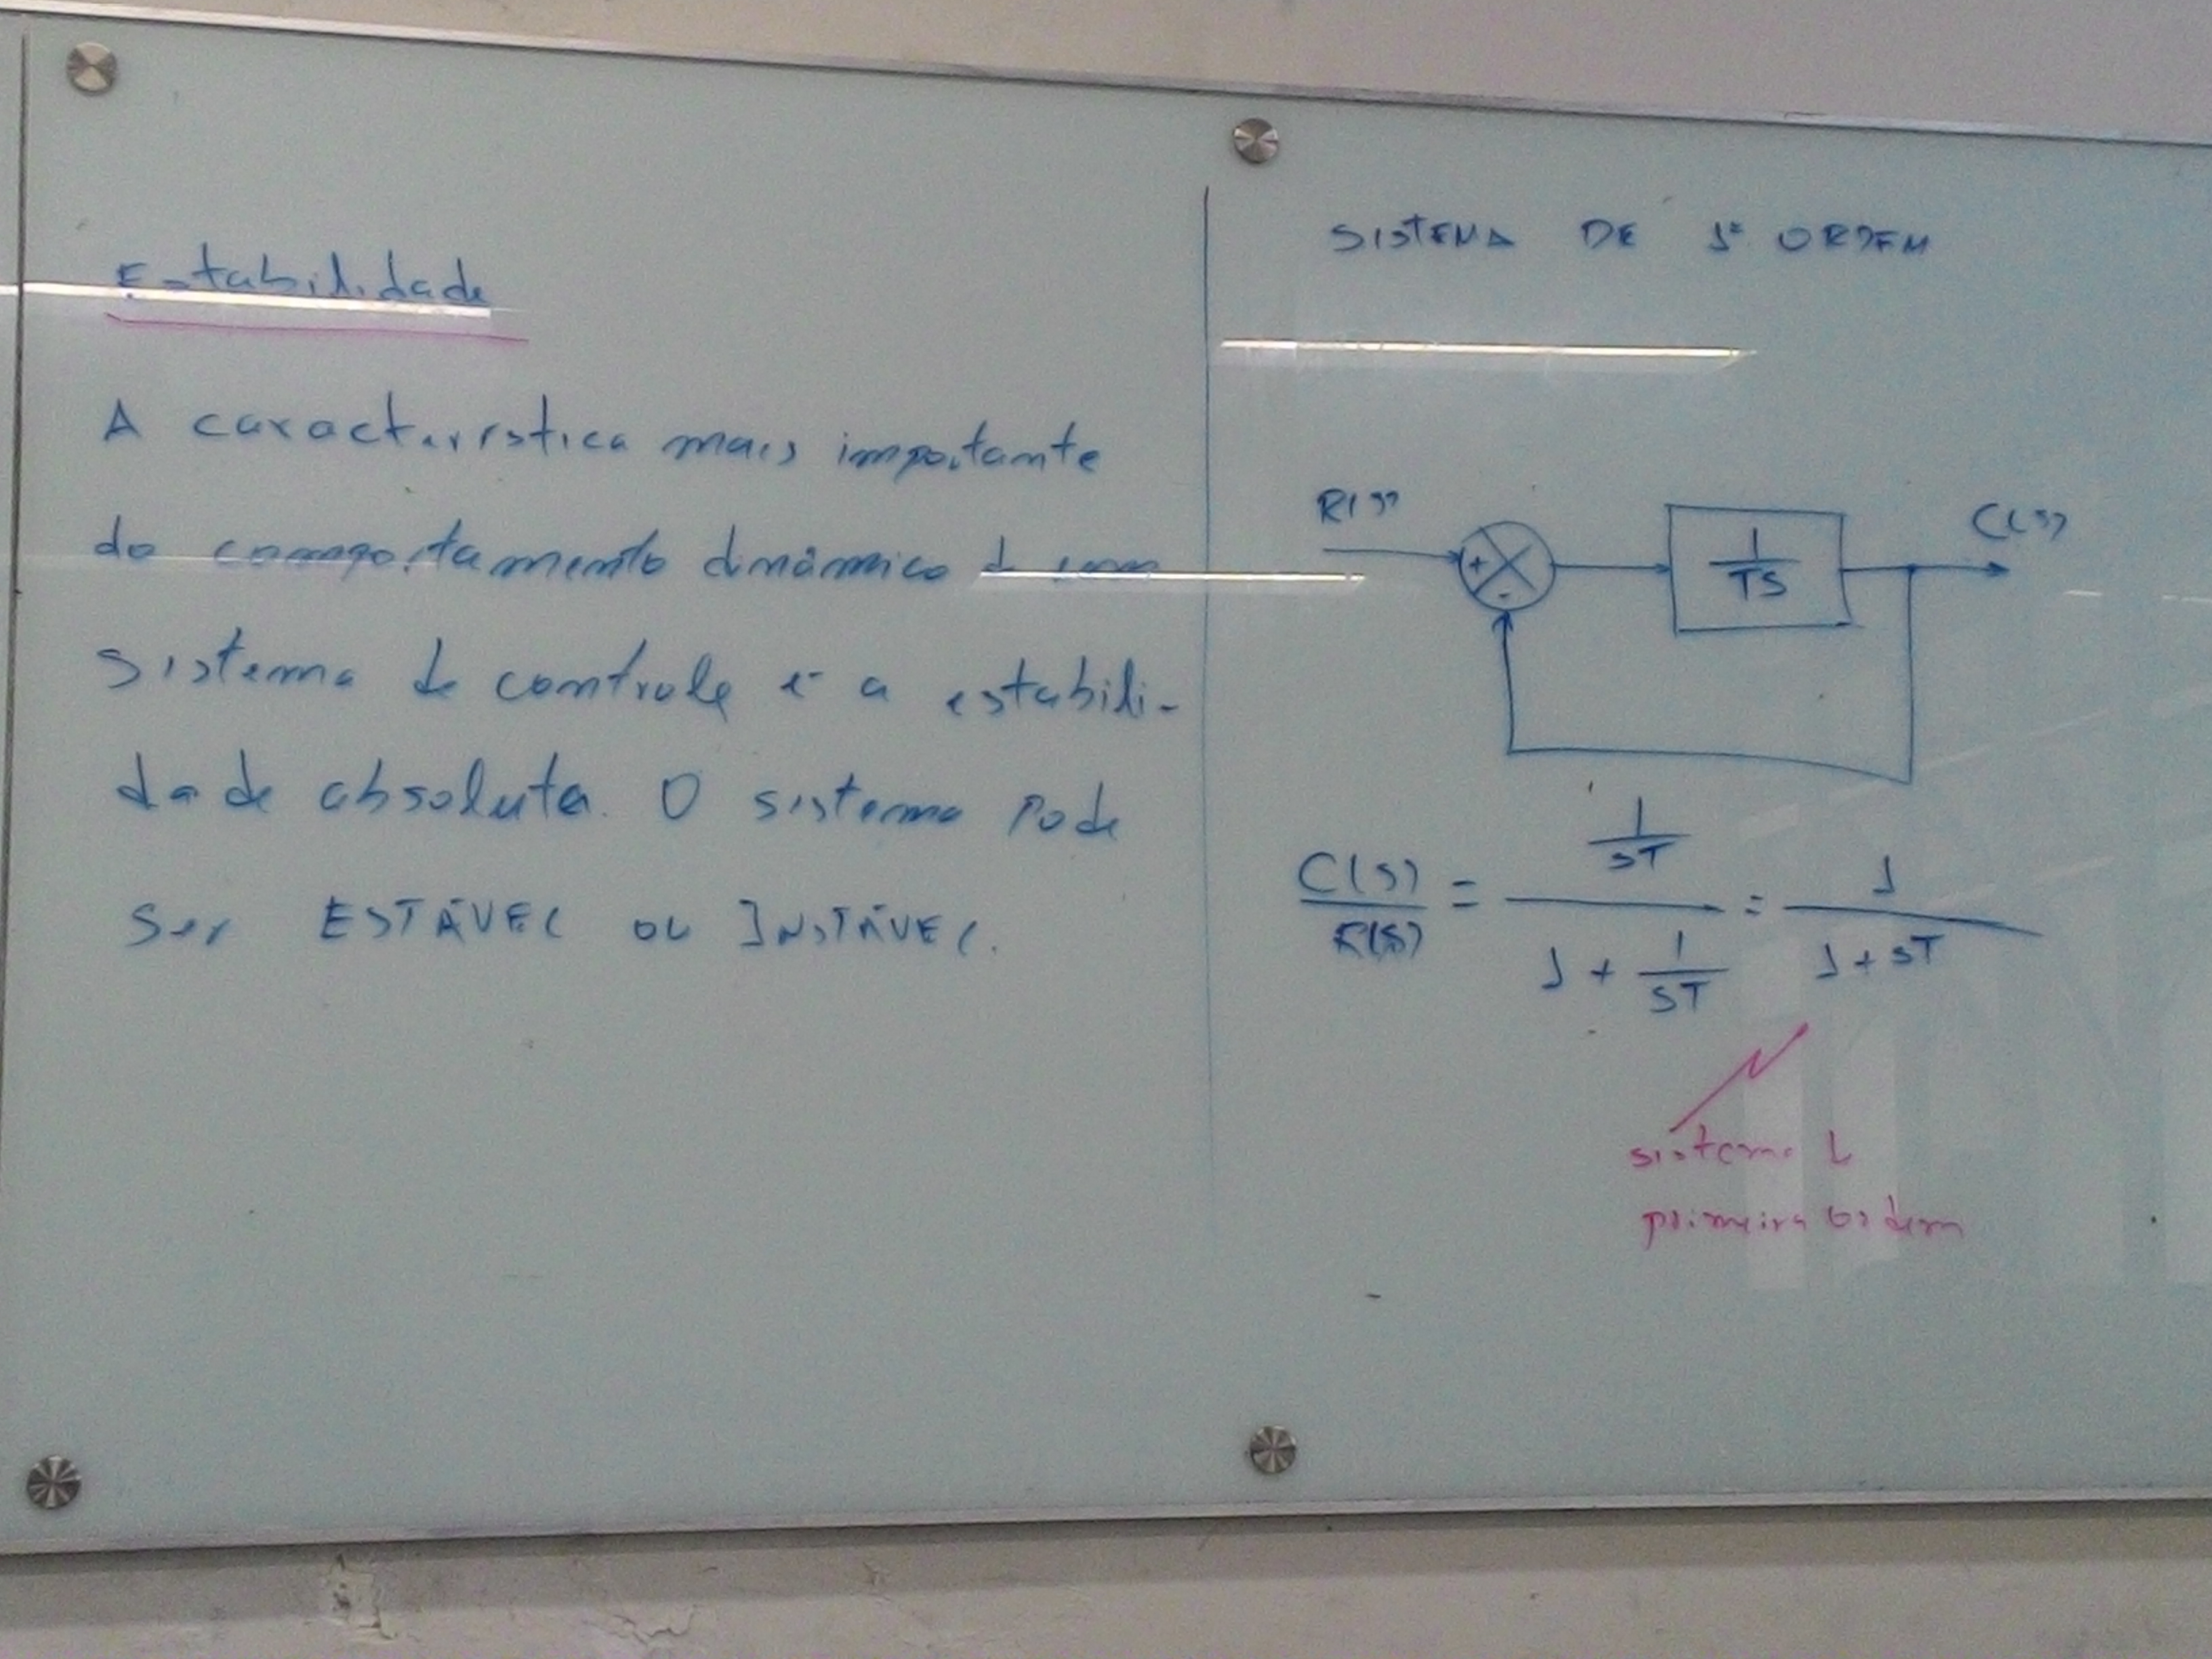 Estabilidade
A característica mais importante
do comportamento dinâmico de um
sistema de controle é a estabili-
dade absoluta. O sistema pode
ser ESTÁVEL OU INSTÁVEL.
SISTEMA DE 1ª ORDEM
R(S)
C(S)
+
-
1
TS
C(S) / R(S) = (1 / ST) / (1 + 1 / ST) = 1 / (1 + ST)
sistema de
primeira ordem